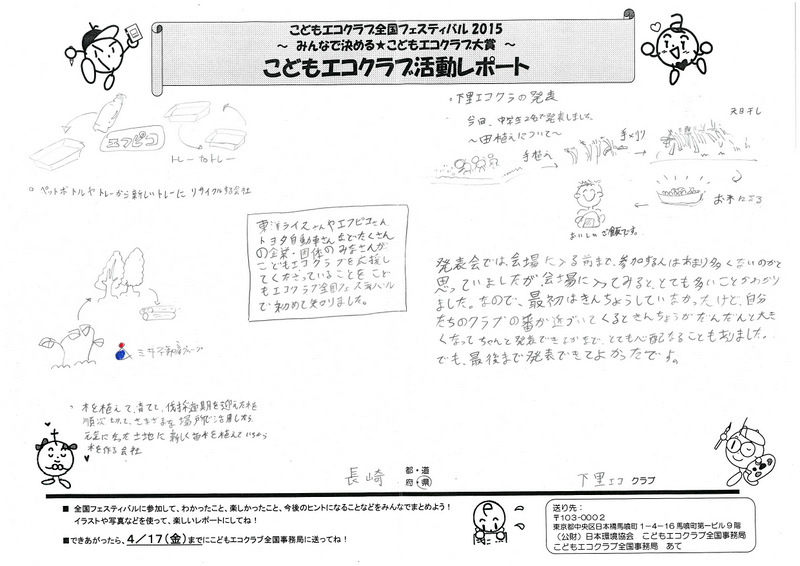 こどもエコクラブ全国フェスティバル 2015
～ みんなで決める★こどもエコクラブ大賞 ～
こどもエコクラブ活動レポート
エフピコ
トレー to トレー
ペットボトルやトレーから新しいトレーにリサイクルする会社
東洋ライスさんやエフピコさん
トヨタ自動車さんなどたくさん
の企業・団体のみなさんが
こどもエコクラブを応援し
てくださっていることをこど
もエコクラブ全国フェスティバル
で初めて知りました。
三井不動産グループ
木を植えて、育てて、伐採適期を迎えた木を
順次切って、さまざまな場所で活用しながら
元気に出た土地に新しく苗木を植えていちから
木を作る会社
・下里エコクラの発表
今回、中学生2名で発表しました。
～田植えについて～
手植え
手メリ
天日干し
お米になる
おいしいご飯です。
発表会では、会場に入る前まで、参加する人はあまり多くないのかと
思っていましたが会場に入ってみると、とても多いことがわかり
ました。なので、最初はきんちょうしていなかったけど、自分
たちのクラブの番が近づいてくるときんちょうがだんだんと大き
くなってちゃんと発表できるかまで、とても心配なることもありました。
でも、最後まで発表できてよかったです。
長崎 都・道 府・県
下里エコ クラブ
■ 全国フェスティバルに参加して、わかったこと、楽しかったこと、今後のヒントになることなどをみんなでまとめよう！
イラストや写真などを使って、楽しいレポートにしてね！
■できあがったら、4／17(金)までにこどもエコクラブ全国事務局に送ってね！
送り先：
〒103-0002
東京都中央区日本橋馬喰町1－4－16 馬喰町第一ビル9階
（公財）日本環境協会 こどもエコクラブ全国事務局
こどもエコクラブ全国事務局 あて